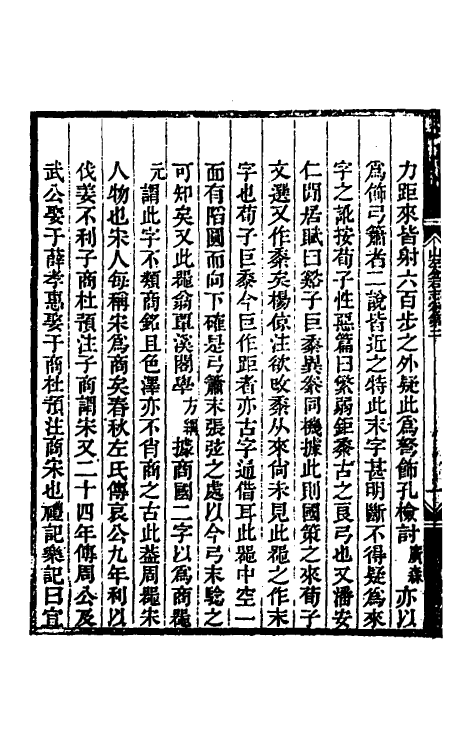 力距來皆射六百步之外疑此為弩飾孔檢討廣森亦以
為飾弓簫者二說皆近之特此末字甚明斷不得疑為來
字之訛按荀子性惡篇曰繁弱鉅黍古之良弓也又潘安
仁閒居賦曰谿子巨黍異絭同機據此則國策之來荀子
文選又作黍矣楊倞注欲改黍从來尚未見此器之作末
字也荀子巨黍今巨作距者亦古字通借耳此器中空一
面有陷圓而向下確是弓簫末張弦之處以今弓末驗之
可知矣又此器翁覃溪閣學方綱據商國二字以為商器
元謂此字不類商銘且色澤亦不肖商之古此葢周器宋
人物也宋人每稱宋為商矣春秋左氏傳哀公九年利以
伐姜不利子商杜預注子商謂宋又二十四年傳周公及
武公娶于薛孝惠娶于商杜預注商宋也禮記樂記曰宜